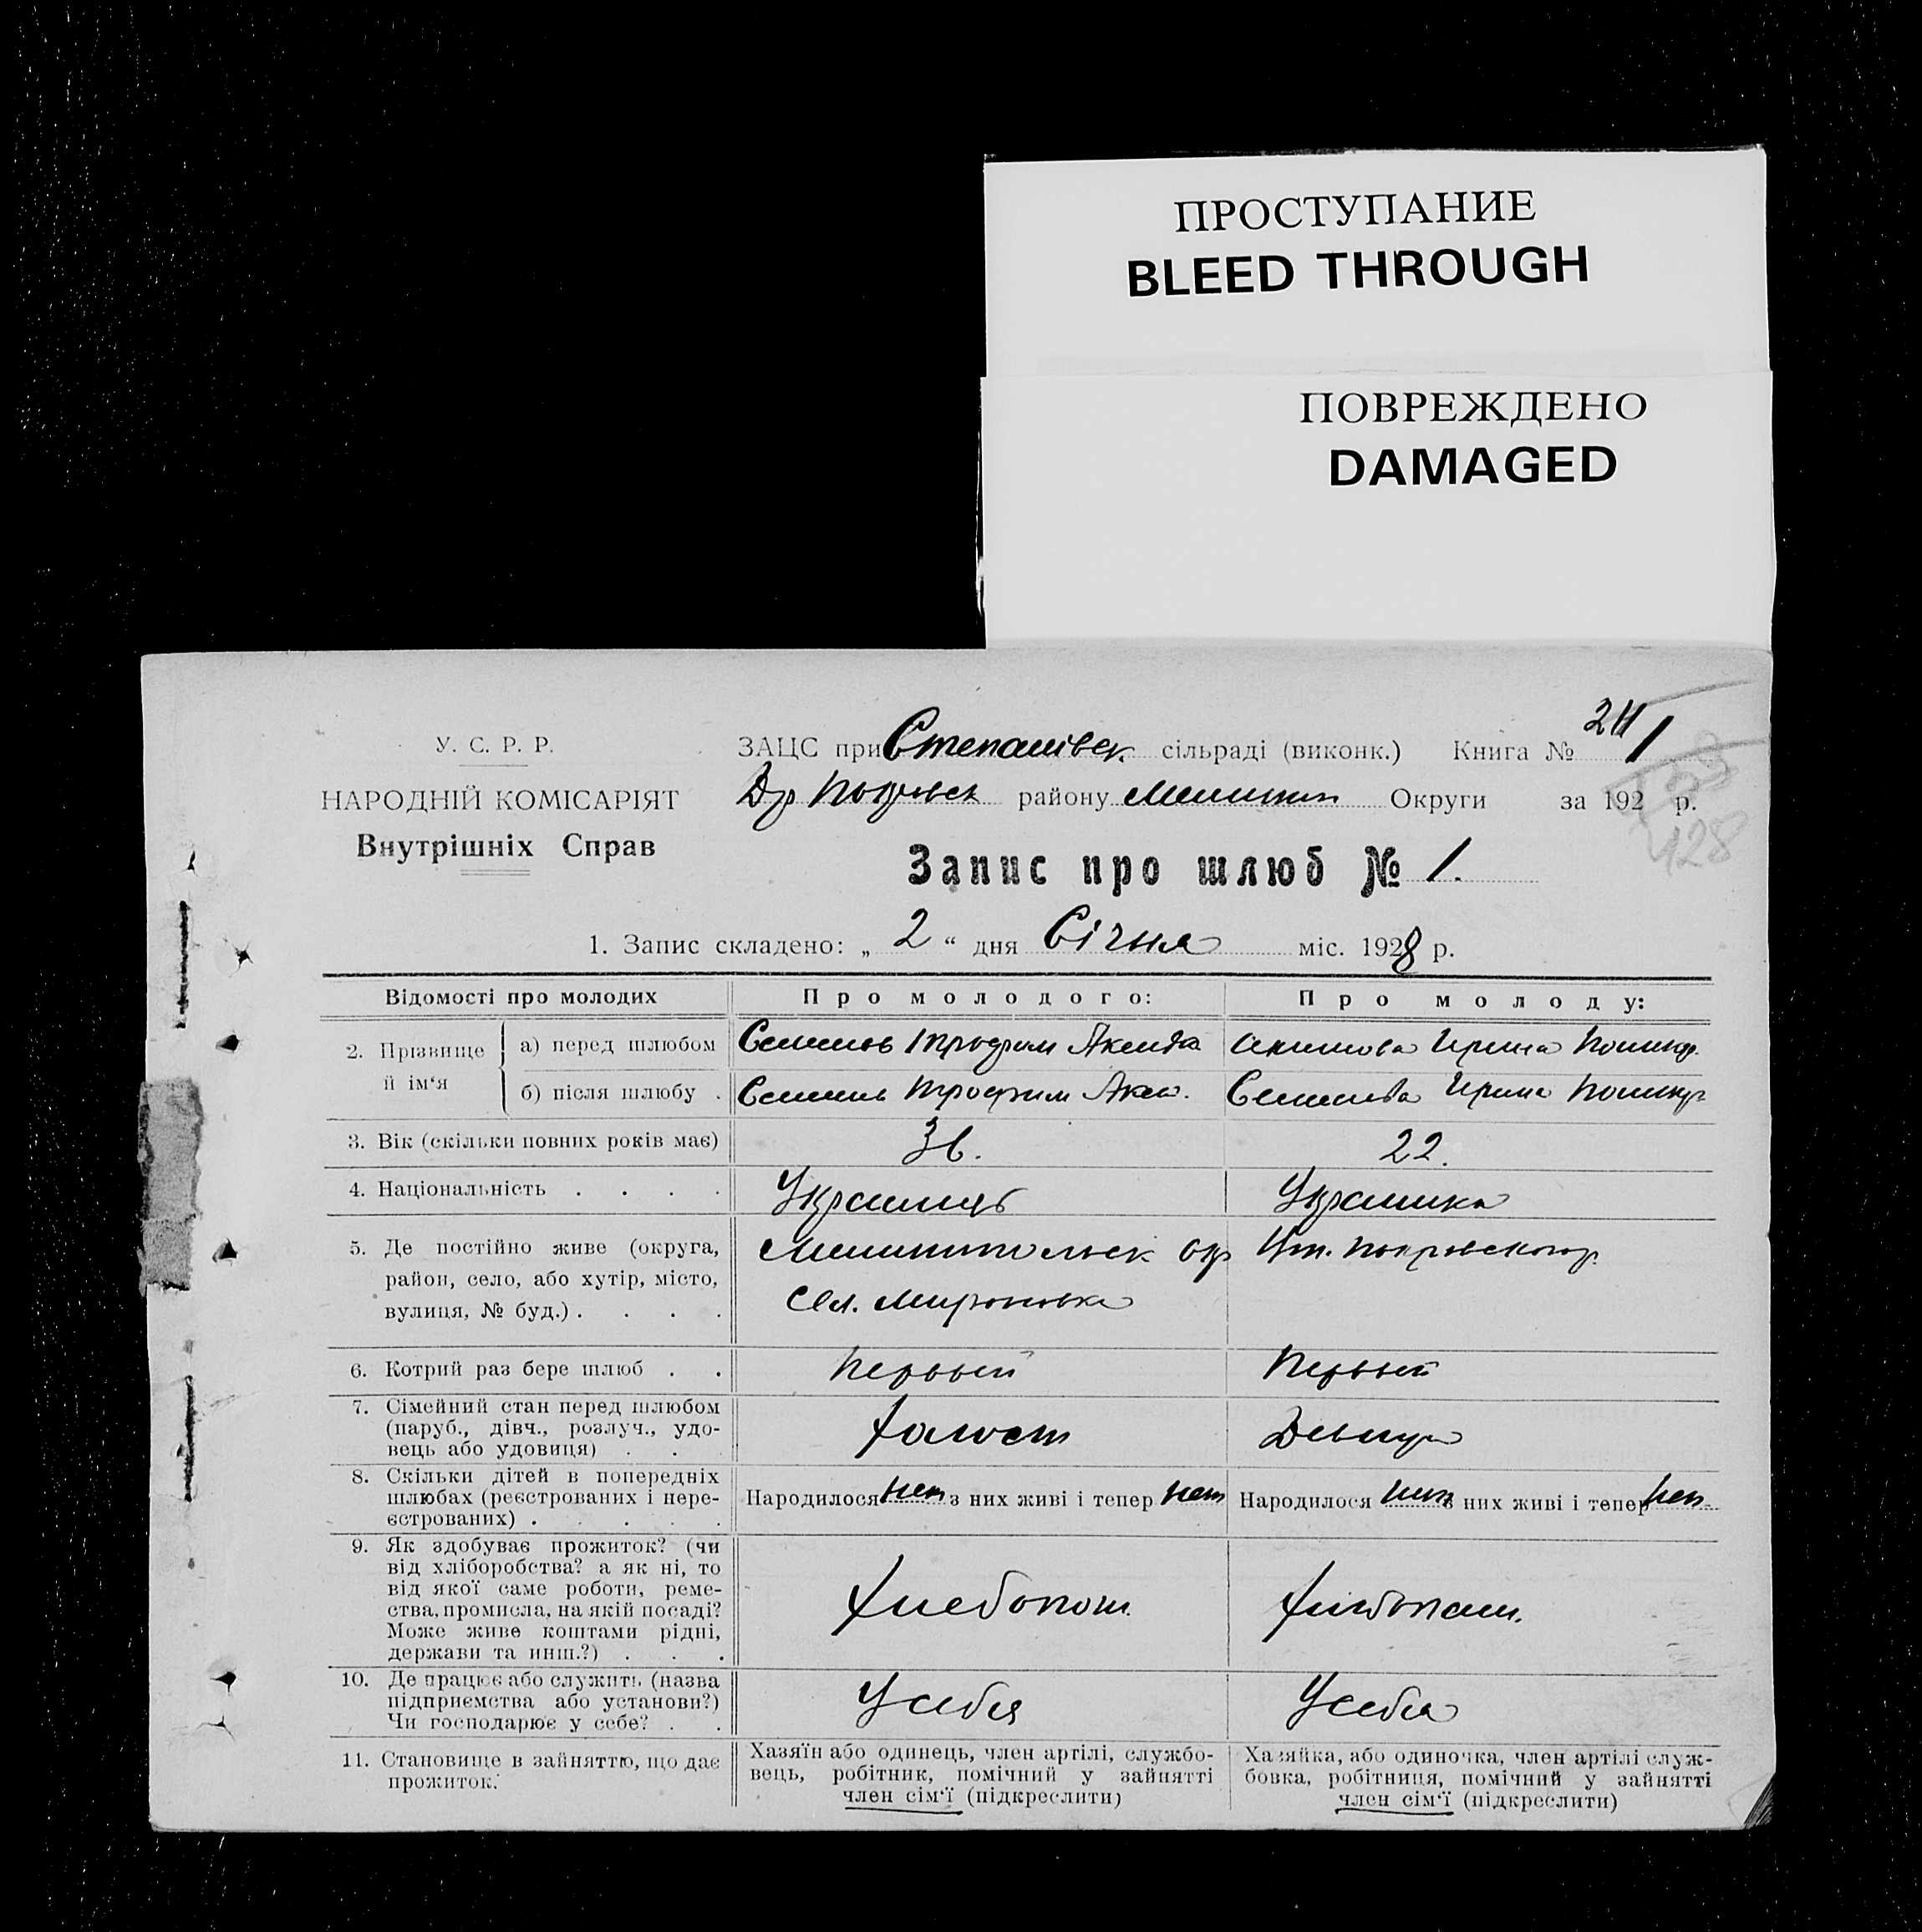 ПРОСТУПАНИЕ
BLEED THROUGH
ПОВРЕЖДЕНО
DAMAGED
У. С. Р. Р.
НАРОДНІЙ КОМІСАРІЯТ
Внутрішніх Справ
ЗАЦС при Степанівск. сільраді (виконк.) Книга №
района Округи за 192 р.
128
Запис про шлюб № 1.
1. Запис складено: „ 2 “ дня Січня міс. 1928 р.
Відомості про молодих Про молодого: Про молоду:
2. Прізвище й ім‘я
а) перед шлюбом Трофим Ирина
б) після шлюбу . Трофим Ирина
3. Вік (скільки повних років має) 36. 22.
4. Національність . . . . Украинец Украинка
5. Де постійно живе (округа, район, село, або хутір, місто, вулиця, № буд.) . . . .
Мелитопольск окр
Сел. Мироновка
6. Котрий раз бере шлюб . . Первый Первый
7. Сімейний стан перед шлюбом (паруб., дівч., розлуч., удовець або удовиця) . . Холост Девица
8. Скільки дітей в попередніх шлюбах (реєстрованих і нереєстрованих) . . . . .
Народилося нет з них живі і тепер нет
Народилося нет з них живі і тепер нет
9. Як здобуває прожиток? (чи від хліборобства? а як ні, то від якої саме роботи, ремества, промисла, на якій посаді? Може живе коштами рідні, держави та инш.?) . . .
Хлебопаш. Хлебопаш.
10. Де працює або служить (назва підприємства або установи?) Чи господарює у себе? . .
У себя У себя
11. Становище в зайняттю, що дає прожиток:
Хазяїн або одинець, член артілі, службовець, робітник, помічний у зайнятті член сім‘ї (підкреслити)
Хазяйка, або одиночка, член артілі службовка, робітниця, помічний у зайнятті член сім‘ї (підкреслити)